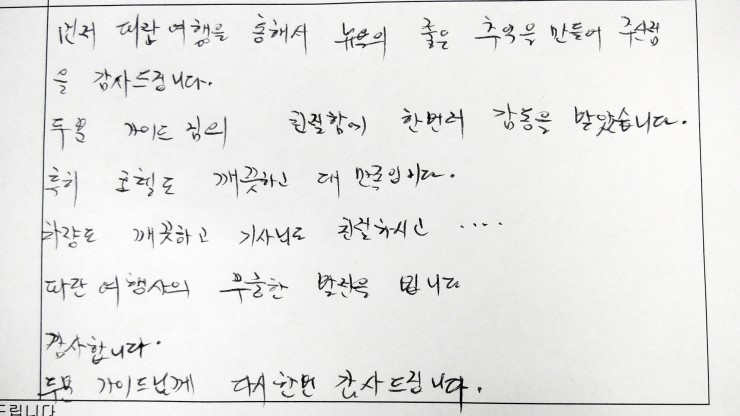 먼저 따랍여행을 통해서 뉴욕의 좋은 추억을 만들어 주신점
을 감사드립니다.
두분 가이드 님의 친절함에 한번더 감동을 받았습니다.
특히 호텔도 깨끗하고 대 만족입이다.
차량도 깨끗하고 기사님도 친절하시고 ....
따란여행사의 무궁한 발전을 빕니다
감사합니다.
두분 가이드님께 다시한번 감사드립니다.
드립니다